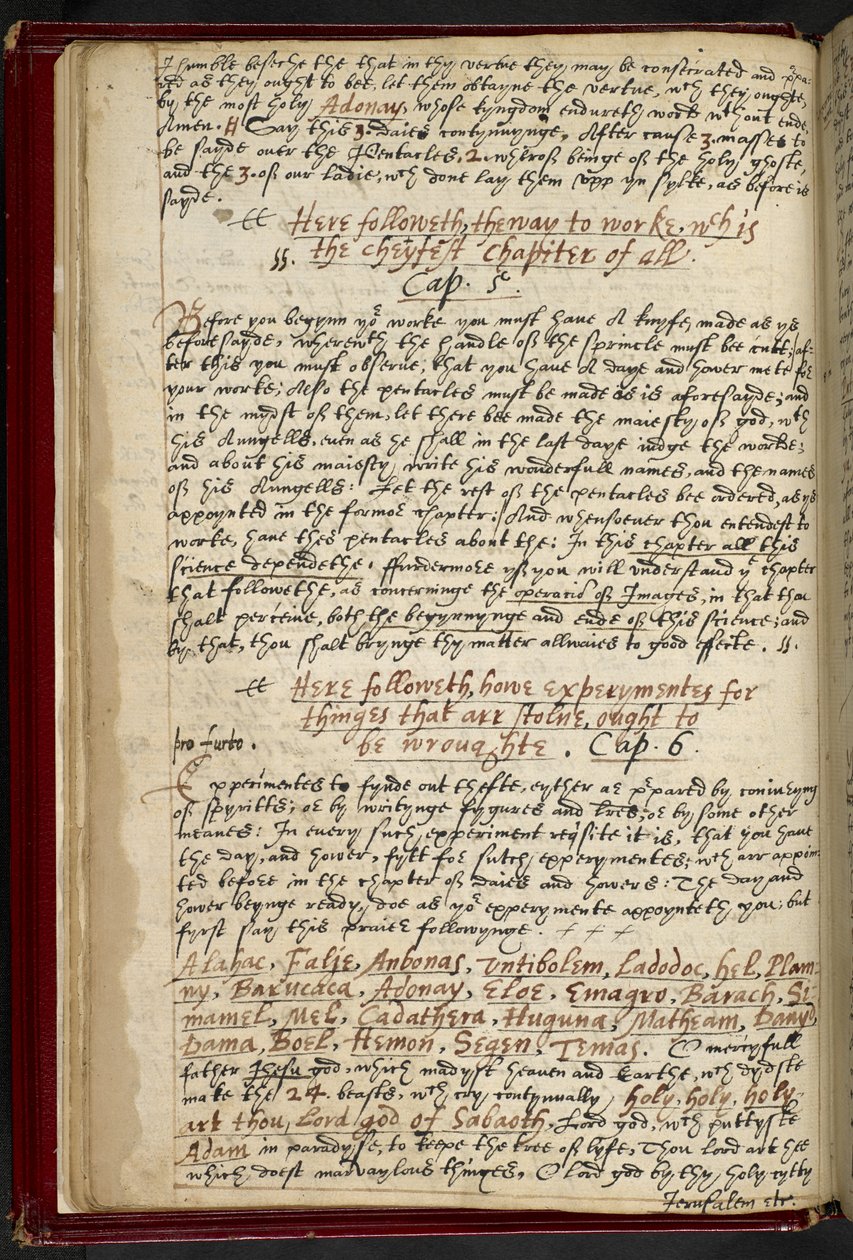 I humble beseche the that in thy vertue they may be consecrated and p'pa-
red as they ought to bee, let them obtayne the vertue, wth they oughte,
by the most holy Adonay, whose kyngdom endureth world wthout ende.
Amen. H Say this 3. daies contynuynge, After cause 3. masses to
be sayde over the Pentacles, 2. wherof beinge of the holy ghoste,
and the 3. of our ladie, wch done lay them upp yn sylke, as before is
sayde.
Here followeth, the way to worke, wch is
the cheyfest chapiter of all.
Cap. 5.
Before you begynn yor worke you must have A knyfe, made as ys
beforesayde, wherewth the handle of the sprincle must bee cutt; af-
ter this you must observe, that you have A daye and hower mete for
your worke; Also the pentacles must be made as is aforesayde; and
in the mydst of them, let there bee made the maiesty of god, wth
his Aungells, even as he shall in the last daye iudge the worlde;
and about his maiesty write his wonderfull names, and the names
of his Aungells: Let the rest of the pentacles bee ordered, as ys
appoynted in the former chapter: And whensoever thou entendest to
worke, have thes pentacles about the: In this chapter all this
science dependethe. ffurdermore yf you will understand ye chapter
that followethe, as concerninge the operacio of Images, in that thou
shalt perceive, both the begynnynge and ende of this science; and
by that, thou shalt brynge thy matter allwaies to good effecte.
Here followeth, howe experymentes for
thinges that arr stolne, ought to
be wroughte. Cap. 6.
pro furto.
Expperimentes to fynde out thefte, eyther ar p'pared by coniueryng
of spyritts; or by writynge fygures and lres; or by some other
meanes: In every such experiment reqisite it is, that you have
the day, and hower, fytt for sutch experymentes; wch arr appoin-
ted before in the chapter of daies and howers: The day and
hower beynge ready, doe as yor experymente appoynteth you; but
fyrst say this praier followynge: + + +
Alahac, Falie, Anbonas, Untibolem, Ladodoc, hel, Plam-
ny, Barucaca, Adonay, Eloe, Emagro, Barach, Si-
mamel, Mel, Cadathera, Huguna, Matheam, Dany,
Dama, Boel, Hemon, Segen, Temas. O mercyfull
father Jhesu god, which madyst heaven and Earthe, wch dydste
make the 24. beasts, wch cry contynually, holy, holy, holy
art thou, Lord god of Sabaoth, Lord god, wch puttyste
Adam in paradyse, to keepe the tree of lyfe, Thou lord art hee
which doest marvaylous thinges, O lord god by thy holy cytty
Jerusalem etc.